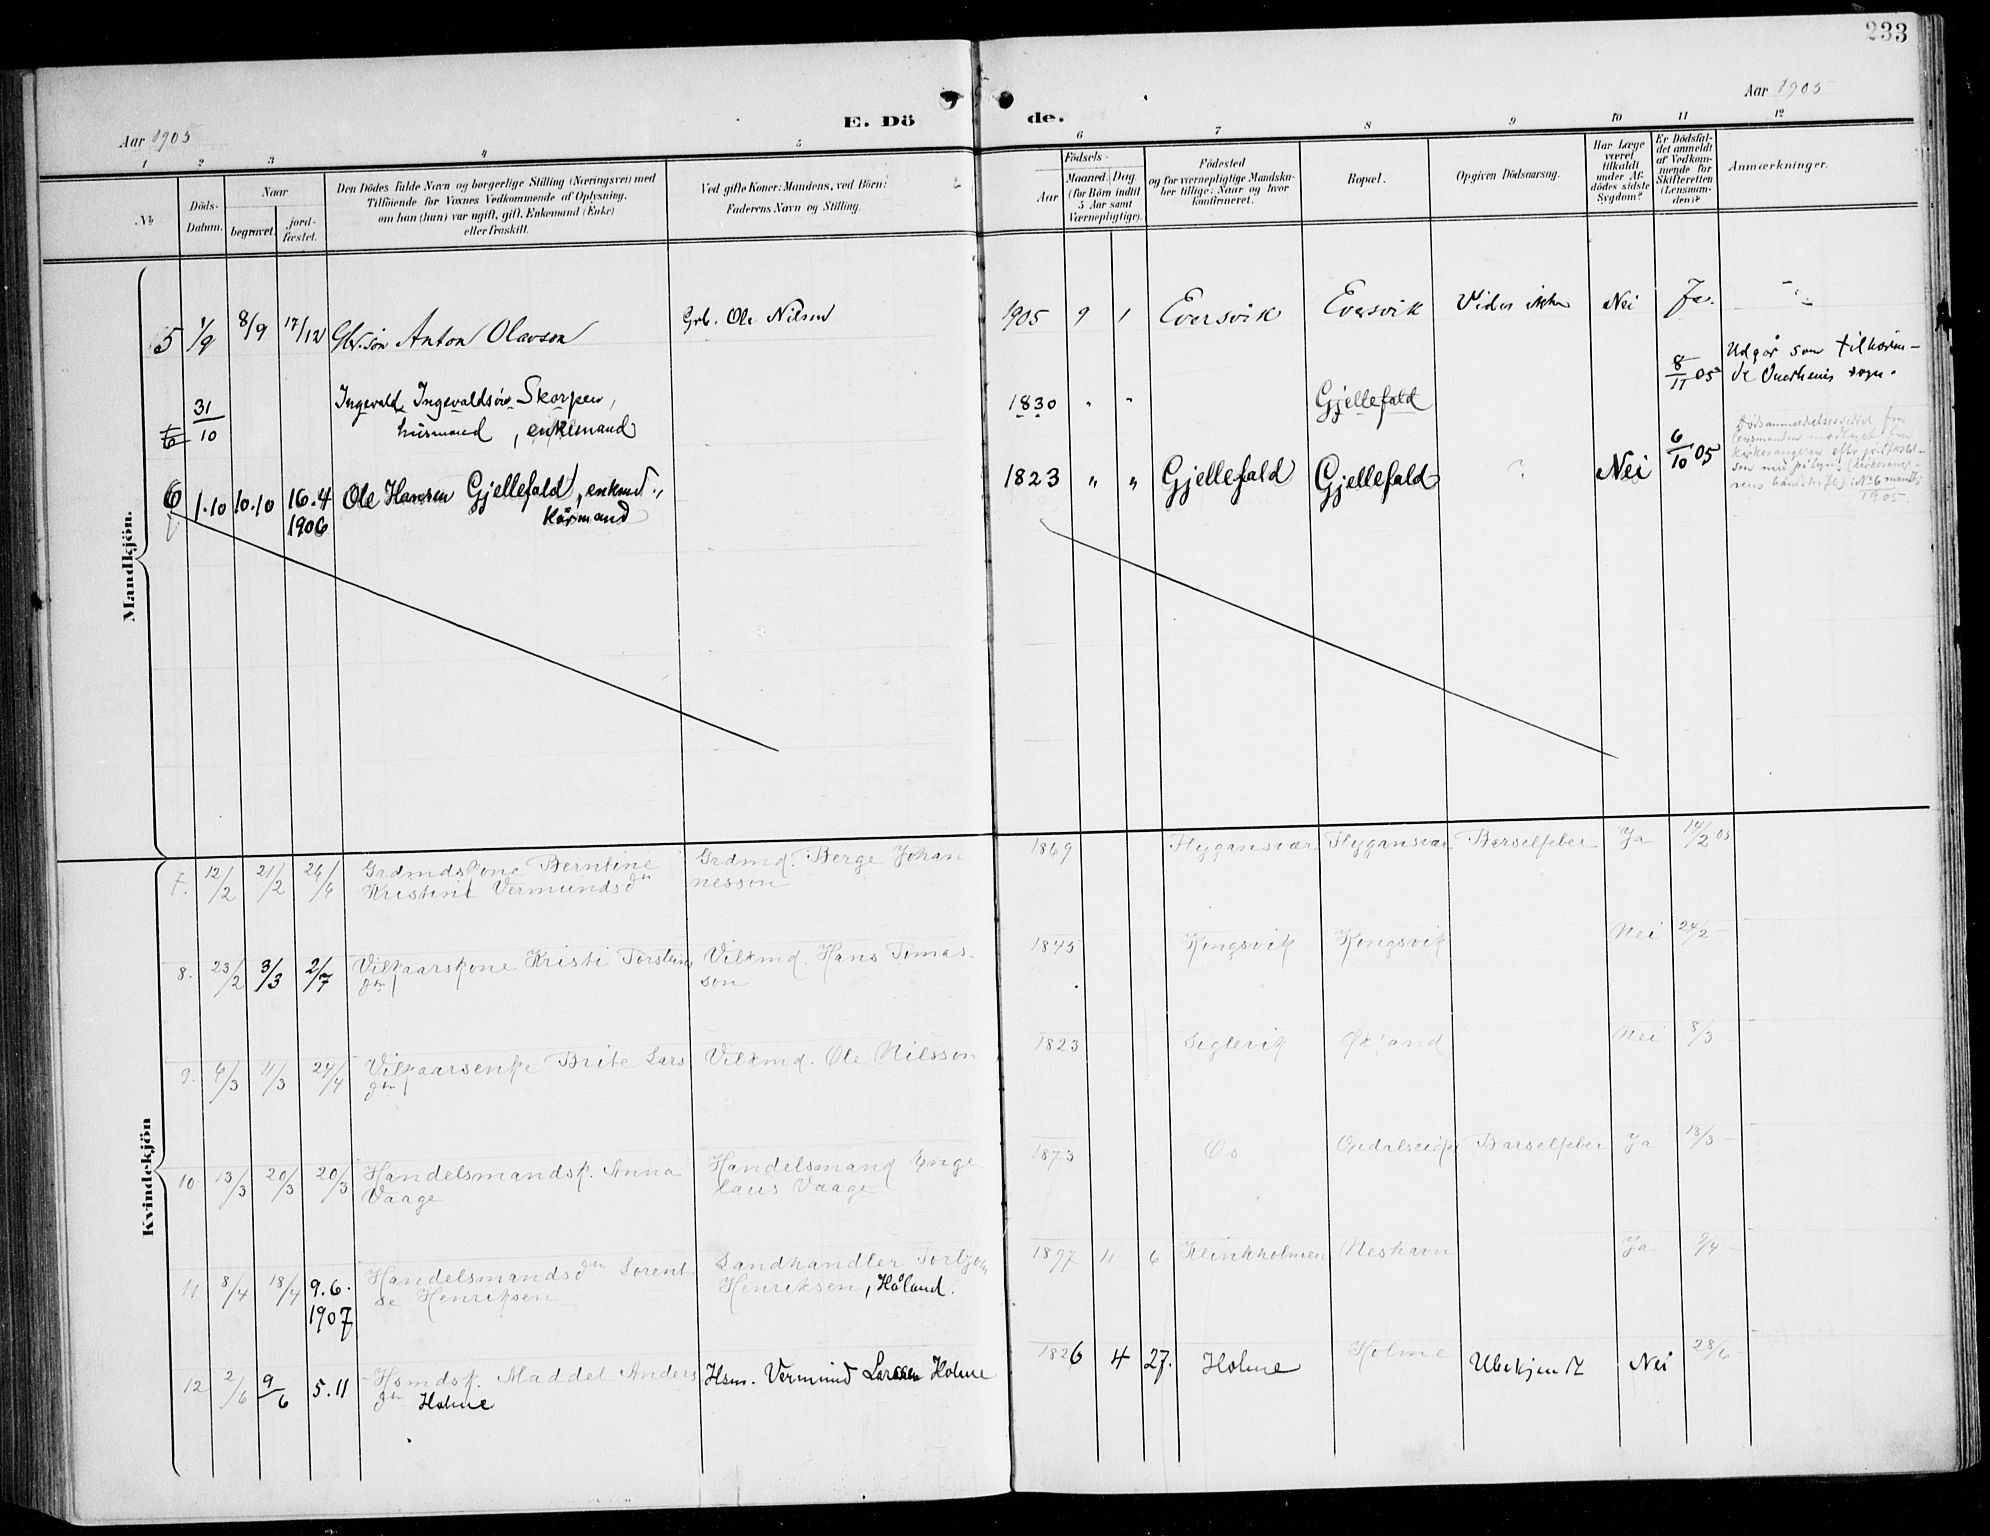 233
Aar 1905
Aar 1905
E. Dö
de.
1 2 3 4 5 6 7 8 9 10 11 12
No
Döds-
Datum.
Naar
begravet.
jord-
fæstet.
Den Dödes fulde Navn og borgerlige Stilling (Næringsvei) med
Tilföiende for Voxnes Vedkommende af Oplysning,
om han (hun) var ugift, gift, Enkemand (Enke)
eller fraskilt.
Ved gifte Koner: Mandens, ved Börn:
Faderens Navn og Stilling.
Födsels-
Aar
Maaned. Dag.
(for Börn indtil
5 Aar samt
Værnepligtige).
Födested
og for værnepligtige Mandska-
ber tillige: Naar og hvor
konfirmeret.
Bopæl.
Opgiven Dödsaarsag.
Har Læge
været
tilkaldt
under Af-
dödes sidste
Sygdom?
Er Dödsfal-
det anmeldt
af Vedkom-
mende for
Skifteretten
(Lensman-
den)?
Anmærkninger.
Mandkjön.
5 1/9 8/9 17/12 Gbr.sön Anton Olavson Grb. Ole Nilsen 1905 9 1 Eversvik Eversvik Vides ikke Nei Ja.
6 31/10 Ingevald Ingevaldsön Skorpen,
husmand, enkemand
1830 " " Gjellefald 8/11 05 Udgår som tilhören-
de sogn.
6 1.10 10.10 16.4
1906
Ole Hansen Gjellefald, enkmd.,
Kårmand
1823 " " Gjellefald Gjellefald ? Nei 6/10 05
1905.
Kvindekjön
7. 12/2 21/2 26/6 Grdmdskone Berntine
Kristine Vermundsdtr
Grdmd. Berge Johan
nesson
1869 Flygansvær Flygansvær Barselfeber Ja 14/2 05
8. 23/2 3/3 2/7 Vilkaarskone Kristi Torsteins
dtr
Vilkmd. Hans Tomas-
son
1845 Kongsvik Kongsvik Nei 24/2 -
9. 6/3 11/3 24/4 Vilkaarsenke Brite Lars
dtr
Vilkmd. Ole Nilsson
1823 Siglevik Økland Nei 8/3 -
10 13/3 20/3 20/3 Handelsmandsk. Anna
Vaage
Handelsmand Enge
laus Vaage
1873 Os Barselfeber Ja 18/3 -
11 8/4 18/4 9.6.
1907
Handelsmandsdtr Lorent
se Henriksen
Landhandler Torbjørn
Henriksen, Håland.
1897 11 6 Kleinkholmen Neshavn Ja 9/4 -
12 2/6 9/6 5.11 Hsmdsk. Maddel Anders
dtr Holme
Hsm. Vermund Larssen Holme
1826 4 27. Holme Holme Ubekjendt Nei 28/6 -